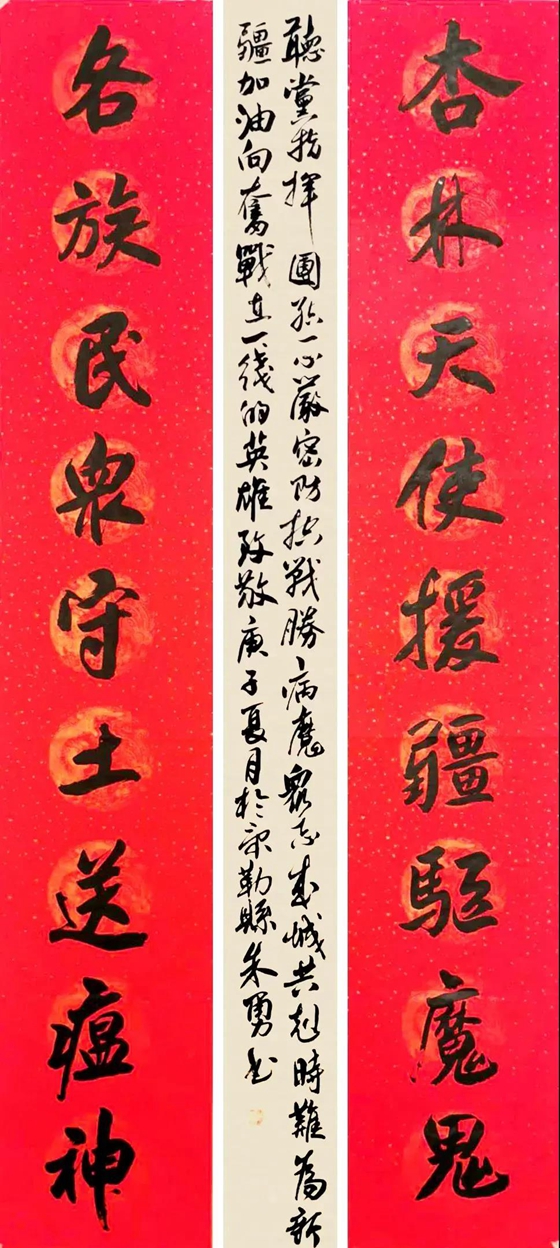 杏林天使援疆驱魔鬼
聽黨指揮團結一心嚴密防控戰勝病魔眾志成城共剋時難為新
疆加油向奮戰在一綫的英雄致敬庚子夏月於疏勒縣朱勇书
各族民众守土送瘟神